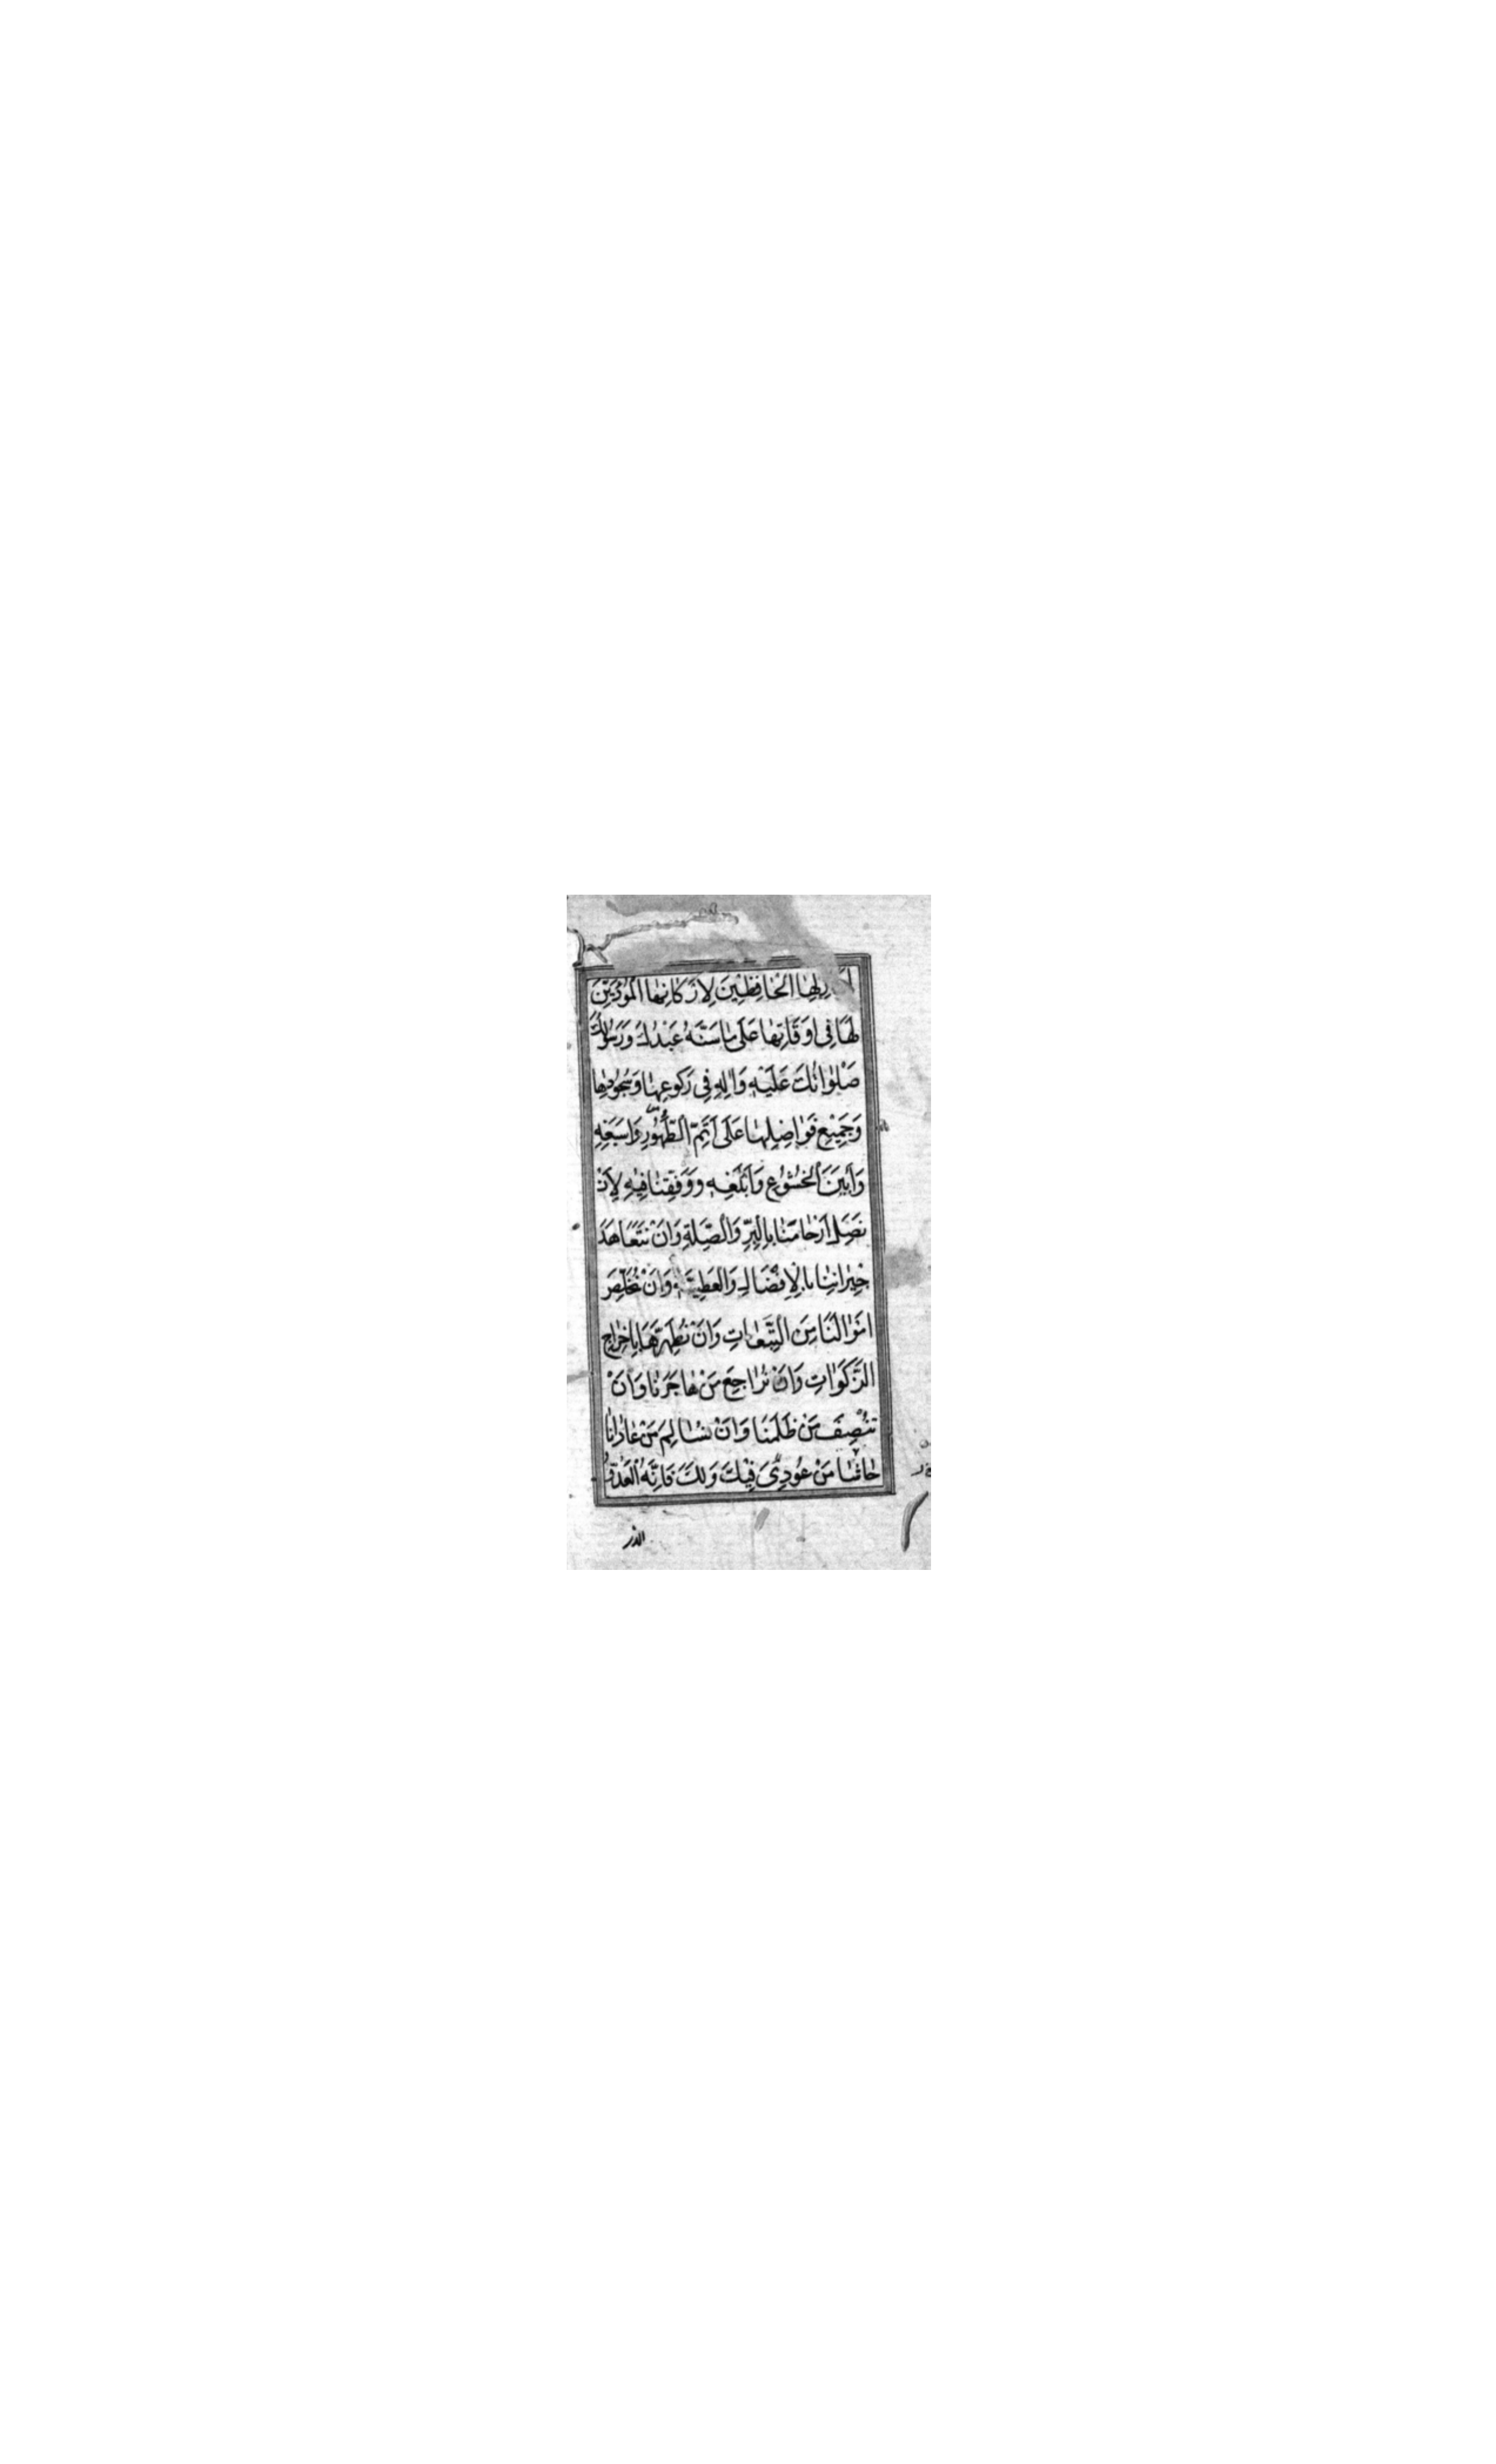 لِهَا الْحَافِظِيْنَ لِاَرْكَانِهَا الْمُؤَدِّيْنَ
لَهَا فِى اَوْقَاتِهَا عَلَى مَا سَنَّهُ عَبْدُكَ وَرَسُولُكَ
صَلَوَاتُكَ عَلَيْهِ وَاٰلِهٖ فِى رُكُوعِهَا وَسُجُودِهَا
وَجَمِيْعِ فَوَاضِلِهَا عَلَى اَتَمِّ الطَّهُورِ وَاَسْبَغِهِ
وَاَبْيَنِ الْخُشُوْعِ وَاَبْلَغِهِ وَوَفِّقْنَا فِيْهِ لِاَنْ
نَصِلَ اَرْحَامَنَا بِالْبِرِّ وَالصِّلَةِ وَاَنْ نَتَعَاهَدَ
جِيْرَانَنَا بِالْاِفْضَالِ وَالْعَطِيَّةِ وَاَنْ نُخَلِّصَ
اَمْوَالَنَا مِنَ التَّبِعَاتِ وَاَنْ نُطَهِّرَهَا بِاِخْرَاجِ
الزَّكَوَاتِ وَاَنْ نُرَاجِعَ مَنْ هَاجَرَنَا وَاَنْ
نُنْصِفَ مَنْ ظَلَمَنَا وَاَنْ نُسَالِمَ مَنْ عَادَانَا
حَاشَا مَنْ عُودِىَ فِيْكَ وَلَكَ فَاِنَّهُ الْعَدُوُّ
الذى